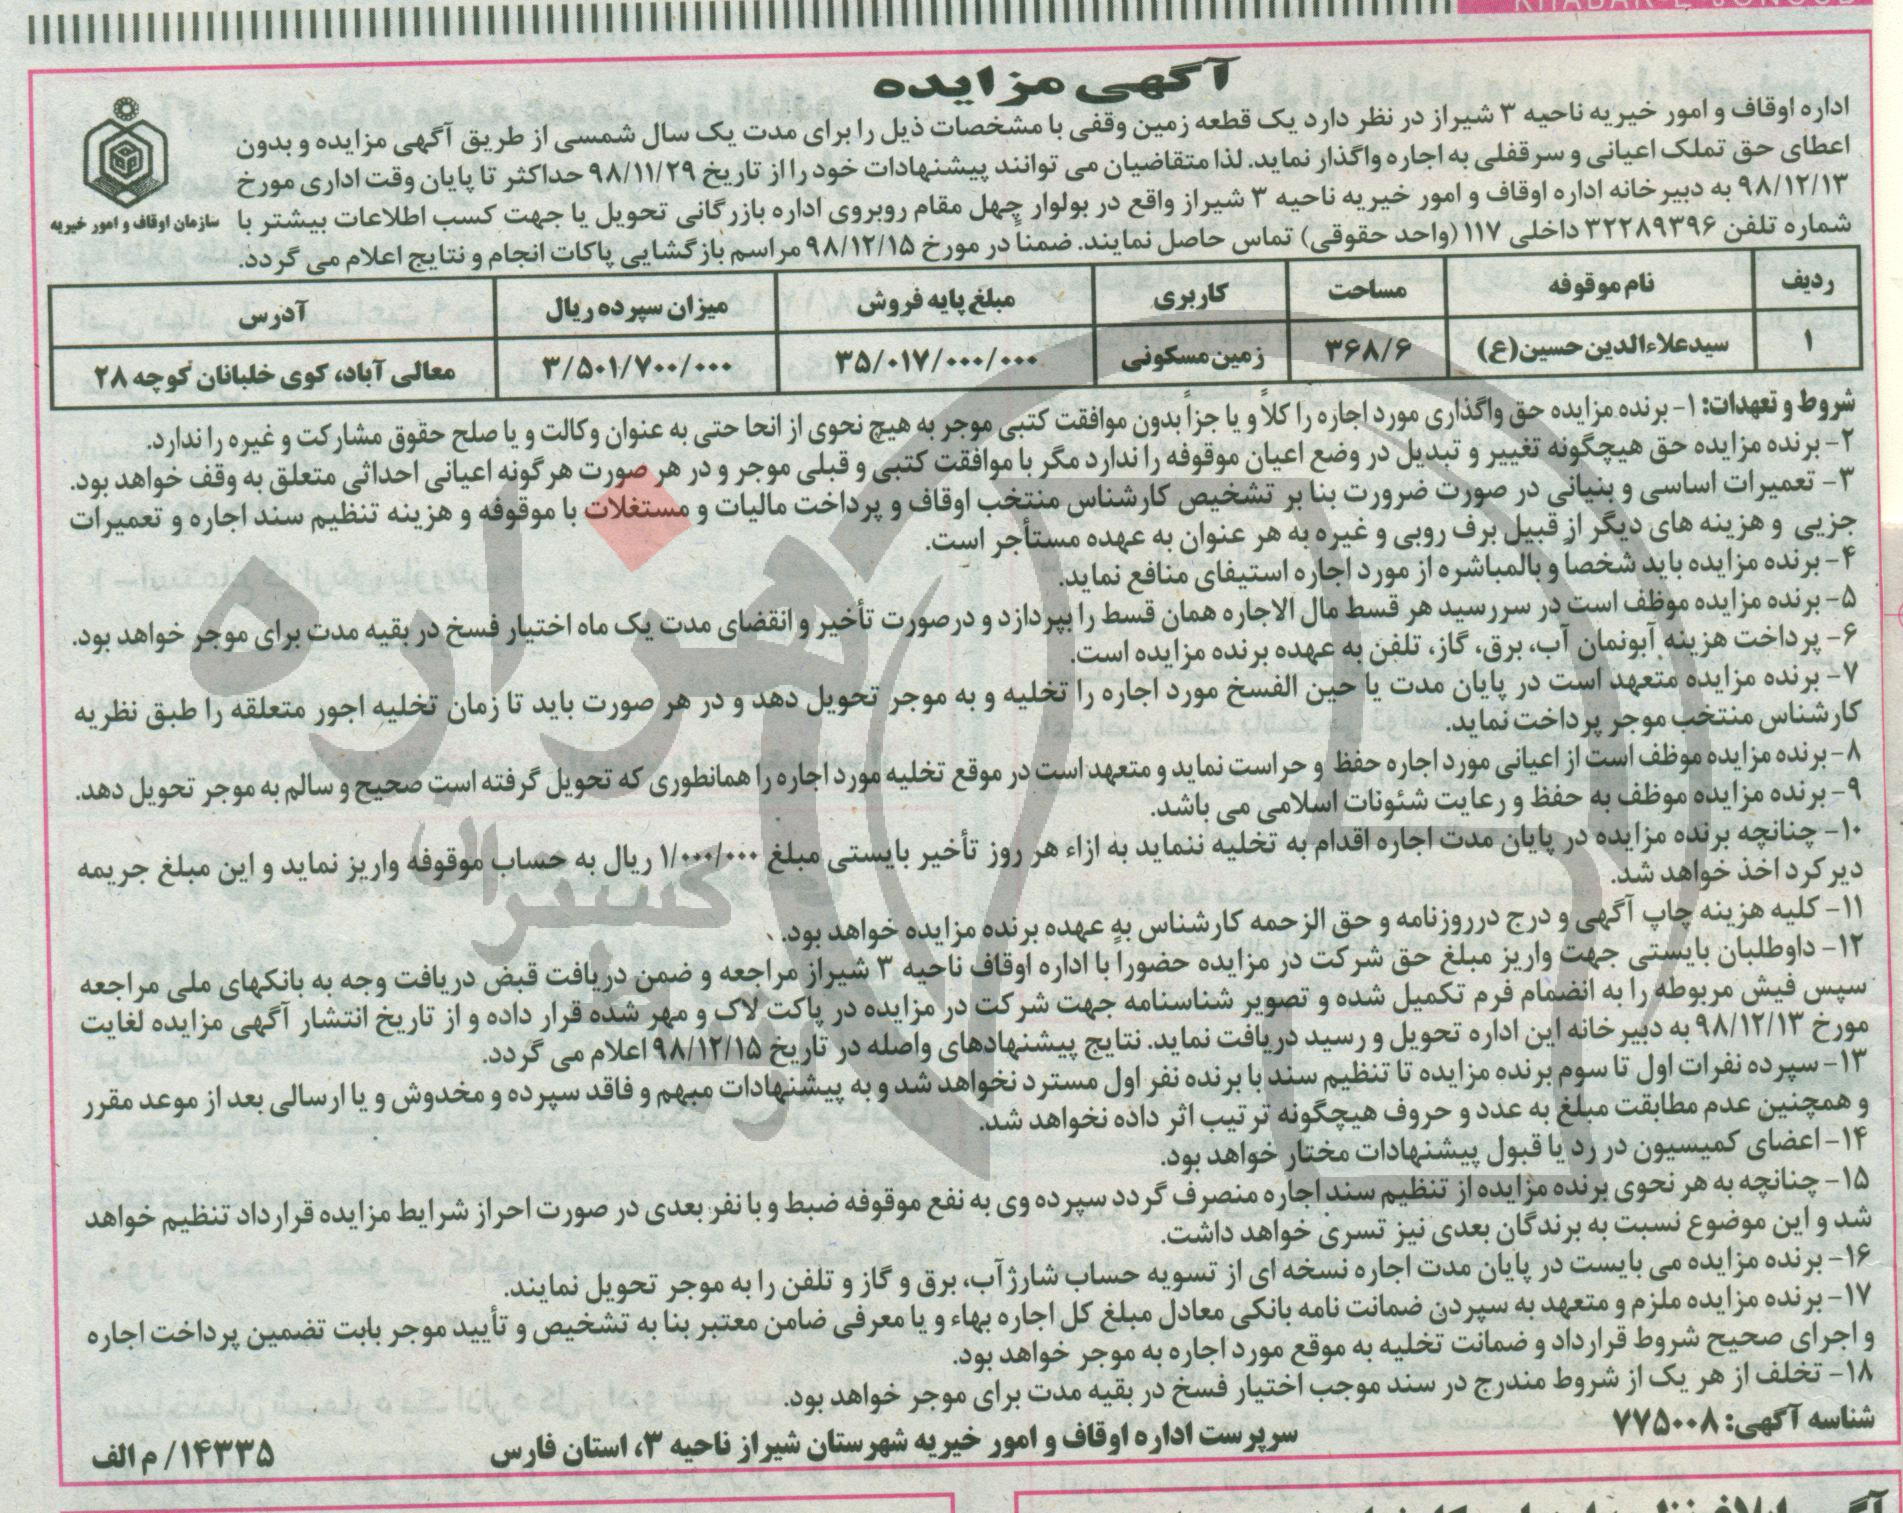 KHABAR-E JONOUB
آگهی مزایده
سازمان اوقاف و امور خیریه
اداره اوقاف و امور خیریه ناحیه ۳ شیراز در نظر دارد یک قطعه زمین وقفی با مشخصات ذیل را برای مدت یک سال شمسی از طریق آگهی مزایده و بدون
اعطای حق تملک اعیانی و سرقفلی به اجاره واگذار نماید. لذا متقاضیان می توانند پیشنهادات خود را از تاریخ ۹۸/۱۱/۲۹ حداکثر تا پایان وقت اداری مورخ
۹۸/۱۲/۱۳ به دبیرخانه اداره اوقاف و امور خیریه ناحیه ۳ شیراز واقع در بولوار چهل مقام روبروی اداره بازرگانی تحویل یا جهت کسب اطلاعات بیشتر با
شماره تلفن ۳۲۲۸۹۳۹۶ داخلی ۱۱۷ (واحد حقوقی) تماس حاصل نمایند. ضمناً در مورخ ۹۸/۱۲/۱۵ مراسم بازگشایی پاکات انجام و نتایج اعلام می گردد.
ردیف نام موقوفه مساحت کاربری مبلغ پایه فروش میزان سپرده ریال آدرس
۱ سیدعلاءالدین حسین(ع) ۳۶۸/۶ زمین مسکونی ۳۵/۰۱۷/۰۰۰/۰۰۰ ۳/۵۰۱/۷۰۰/۰۰۰ معالی آباد، کوی خلبانان کوچه ۲۸
شروط و تعهدات: ۱- برنده مزایده حق واگذاری مورد اجاره را کلاً و یا جزاً بدون موافقت کتبی موجر به هیچ نحوی از انحا حتی به عنوان وکالت و یا صلح حقوق مشارکت و غیره را ندارد.
۲- برنده مزایده حق هیچگونه تغییر و تبدیل در وضع اعیان موقوفه را ندارد مگر با موافقت کتبی و قبلی موجر و در هر صورت هرگونه اعیانی احداثی متعلق به وقف خواهد بود.
۳- تعمیرات اساسی و بنیانی در صورت ضرورت بنا بر تشخیص کارشناس منتخب اوقاف و پرداخت مالیات و مستغلات با موقوفه و هزینه تنظیم سند اجاره و تعمیرات
جزیی و هزینه های دیگر از قبیل برف روبی و غیره به هر عنوان به عهده مستأجر است.
۴- برنده مزایده باید شخصا و بالمباشره از مورد اجاره استیفای منافع نماید.
۵- برنده مزایده موظف است در سررسید هر قسط مال الاجاره همان قسط را بپردازد و درصورت تأخیر و انقضای مدت یک ماه اختیار فسخ در بقیه مدت برای موجر خواهد بود.
۶- پرداخت هزینه آبونمان آب، برق، گاز، تلفن به عهده برنده مزایده است.
۷- برنده مزایده متعهد است در پایان مدت یا حین الفسخ مورد اجاره را تخلیه و به موجر تحویل دهد و در هر صورت باید تا زمان تخلیه اجور متعلقه را طبق نظریه
کارشناس منتخب موجر پرداخت نماید.
۸- برنده مزایده موظف است از اعیانی مورد اجاره حفظ و حراست نماید و متعهد است در موقع تخلیه مورد اجاره را همانطوری که تحویل گرفته است صحیح و سالم به موجر تحویل دهد.
۹- برنده مزایده موظف به حفظ و رعایت شئونات اسلامی می باشد.
۱۰- چنانچه برنده مزایده در پایان مدت اجاره اقدام به تخلیه ننماید به ازاء هر روز تأخیر بایستی مبلغ ۱/۰۰۰/۰۰۰ ریال به حساب موقوفه واریز نماید و این مبلغ جریمه
دیرکرد اخذ خواهد شد.
۱۱- کلیه هزینه چاپ آگهی و درج درروزنامه و حق الزحمه کارشناس به عهده برنده مزایده خواهد بود.
۱۲- داوطلبان بایستی جهت واریز مبلغ حق شرکت در مزایده حضورا با اداره اوقاف ناحیه ۳ شیراز مراجعه و ضمن دریافت قبض دریافت وجه به بانکهای ملی مراجعه
سپس فیش مربوطه را به انضمام فرم تکمیل شده و تصویر شناسنامه جهت شرکت در مزایده در پاکت لاک و مهر شده قرار داده و از تاریخ انتشار آگهی مزایده لغایت
مورخ ۹۸/۱۲/۱۳ به دبیرخانه این اداره تحویل و رسید دریافت نماید. نتایج پیشنهادهای واصله در تاریخ ۹۸/۱۲/۱۵ اعلام می گردد.
۱۳- سپرده نفرات اول تا سوم برنده مزایده تا تنظیم سند با برنده نفر اول مسترد نخواهد شد و به پیشنهادات مبهم و فاقد سپرده و مخدوش و یا ارسالی بعد از موعد مقرر
و همچنین عدم مطابقت مبلغ به عدد و حروف هیچگونه ترتیب اثر داده نخواهد شد.
۱۴- اعضای کمیسیون در رد یا قبول پیشنهادات مختار خواهد بود.
۱۵- چنانچه به هر نحوی برنده مزایده از تنظیم سند اجاره منصرف گردد سپرده وی به نفع موقوفه ضبط و با نفر بعدی در صورت احراز شرایط مزایده قرارداد تنظیم خواهد
شد و این موضوع نسبت به برندگان بعدی نیز تسری خواهد داشت.
۱۶- برنده مزایده می بایست در پایان مدت اجاره نسخه ای از تسویه حساب شارژ آب، برق و گاز و تلفن را به موجر تحویل نمایند.
۱۷- برنده مزایده ملزم و متعهد به سپردن ضمانت نامه بانکی معادل مبلغ کل اجاره بهاء و یا معرفی ضامن معتبر بنا به تشخیص و تأیید موجر بابت تضمین پرداخت اجاره
و اجرای صحیح شروط قرارداد و ضمانت تخلیه به موقع مورد اجاره به موجر خواهد بود.
۱۸- تخلف از هر یک از شروط مندرج در سند موجب اختیار فسخ در بقیه مدت برای موجر خواهد بود.
شناسه آگهی: ۷۷۵۰۰۸
سرپرست اداره اوقاف و امور خیریه شهرستان شیراز ناحیه ۳، استان فارس
۱۴۳۳۵/ م الف
هزاره